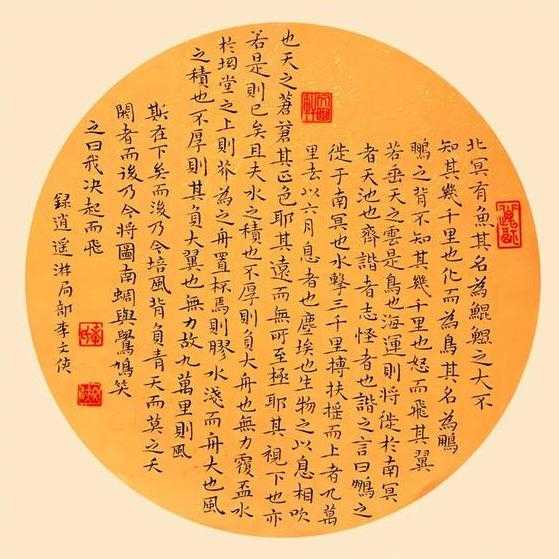 北冥有魚其名為鯤鯤之大不
知其幾千里也化而為鳥其名為鵬
鵬之背不知其幾千里也怒而飛其翼
若垂天之雲是鳥也海運則將徙於南冥
者天池也齊諧者志怪者也諧之言曰鵬之
徙于南冥也水擊三千里摶扶搖而上者九萬
里去以六月息者也塵埃也生物之以息相吹
也天之蒼蒼其正色耶其遠而無所至極耶其視下也亦
若是則已矣且夫水之積也不厚則負大舟也無力覆盃水
於坳堂之上則芥為之舟置杯焉則膠水淺而舟大也風
之積也不厚則其負大翼也無力故九萬里則風
斯在下矣而後乃今培風背負青天而莫之夭
閼者而後乃今將圖南蜩與鷽鳩笑
之曰我決起而飛
錄逍遙游局部李文俠